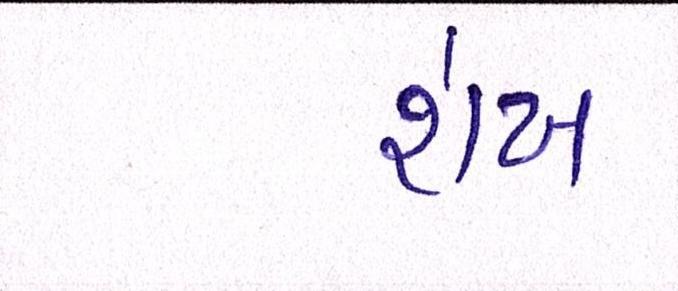 શંખ